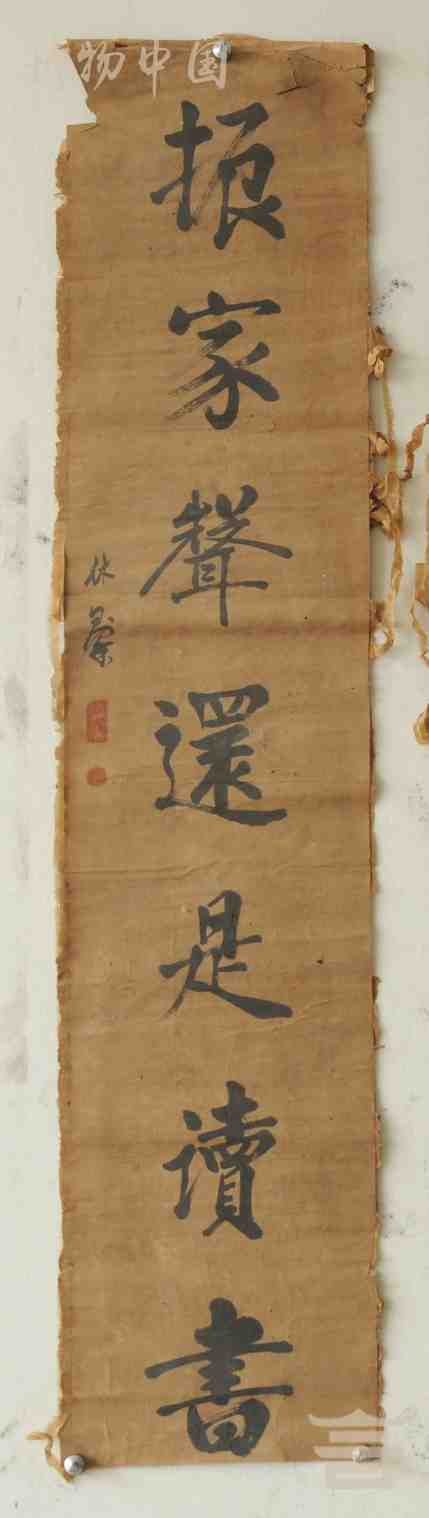 物中国
振家聲還是讀書